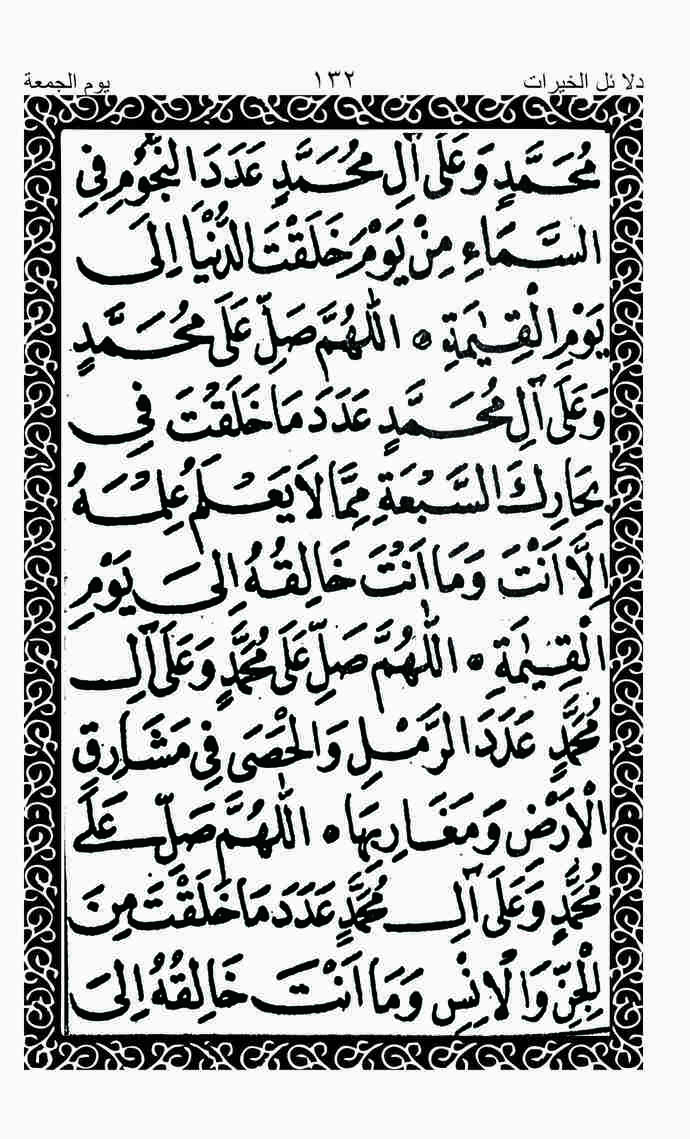 دلا ئل الخيرات ١٣٢ يوم الجمعة
مُحَمَّدٍ وَعَلَى آلِ مُحَمَّدٍ عَدَدَ النُّجُومِ فِي
السَّمَاءِ مِنْ يَوْمَ خَلَقْتَ الدُّنْيَا اِلَى
يَوْمِ الْقِيٰمَةِ ۞ اَللّٰهُمَّ صَلِّ عَلَى مُحَمَّدٍ
وَعَلَى آلِ مُحَمَّدٍ عَدَدَ مَا خَلَقْتَ فِي
بِحَارِكَ السَّبْعَةِ مِمَّا لَا يَعْلَمُ عِلْمَهُ
اِلَّا اَنْتَ وَمَا اَنْتَ خَالِقُهُ اِلَى يَوْمِ
الْقِيٰمَةِ ۞ اَللّٰهُمَّ صَلِّ عَلَى مُحَمَّدٍ وَعَلَى آلِ
مُحَمَّدٍ عَدَدَ الرَّمْلِ وَالْحَصَى فِي مَشَارِقِ
الْاَرْضِ وَمَغَارِبِهَا ۞ اَللّٰهُمَّ صَلِّ عَلَى
مُحَمَّدٍ وَعَلَى آلِ مُحَمَّدٍ عَدَدَ مَا خَلَقْتَ مِنَ
الْجِنِّ وَالْاِنْسِ وَمَا اَنْتَ خَالِقُهُ اِلَى